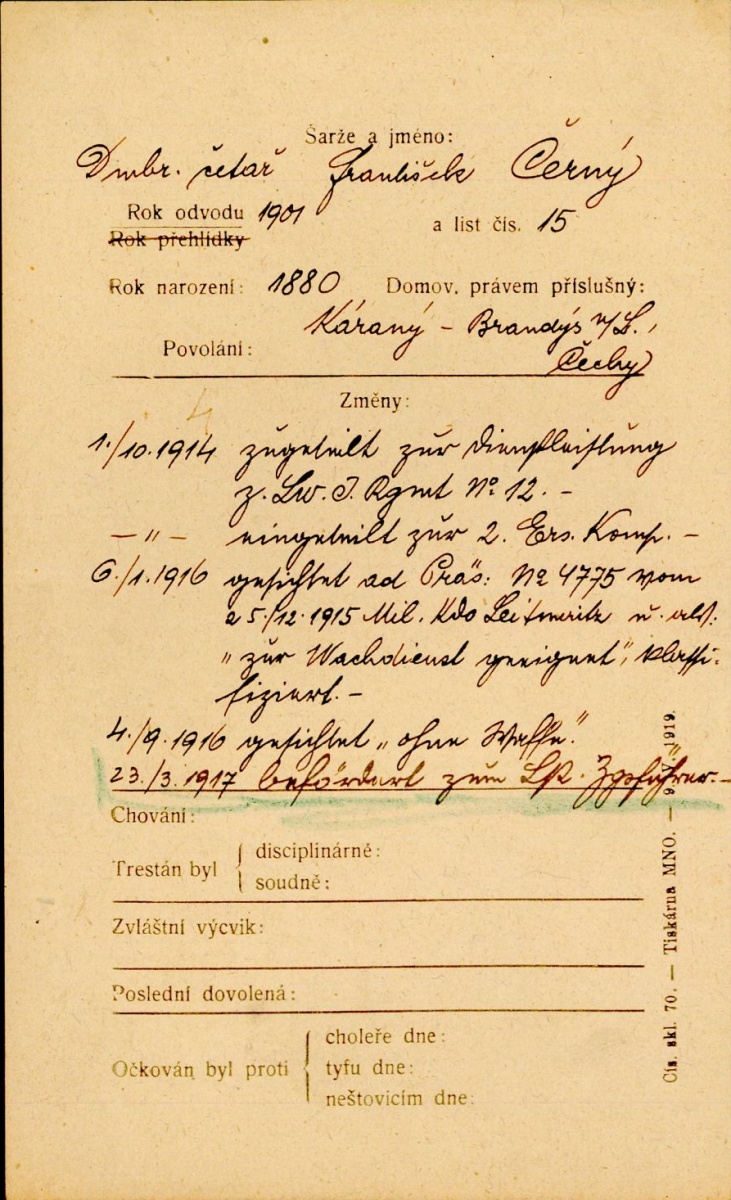 Šarže a jméno:
Dmbr. četař František Černý
Rok odvodu 1901 a list čís. 15
Rok přehlídky
Rok narození: 1880 Domov. právem příslušný:
Káraný – Brandýs n/L.,
Povolání: Čechy
Změny:
4
1./10.1914 zugeteilt zur Dienstleistung
z. Lw. I. Rgmt No 12. –
– " – eingeteilt zur 2. Ers. Komp. –
6./1.1916 gesichtet ad Präs: No 4775 vom
25./12.1915 Mil. Kdo Leitmeritz u. als:
"zur Wachdienst geeignet", klassi-
fiziert. –
4./9.1916 gesichtet "ohne Waffe."
23./3.1917 befördert zum Zgsführer. –
Chování:
Trestán byl { disciplinárně:
soudně:
Zvláštní výcvik:
Poslední dovolená:
Očkován byl proti { choleře dne:
tyfu dne:
neštovicím dne:
Čís. skl. 70. — Tiskárna MNO. — 9. V. 1919.